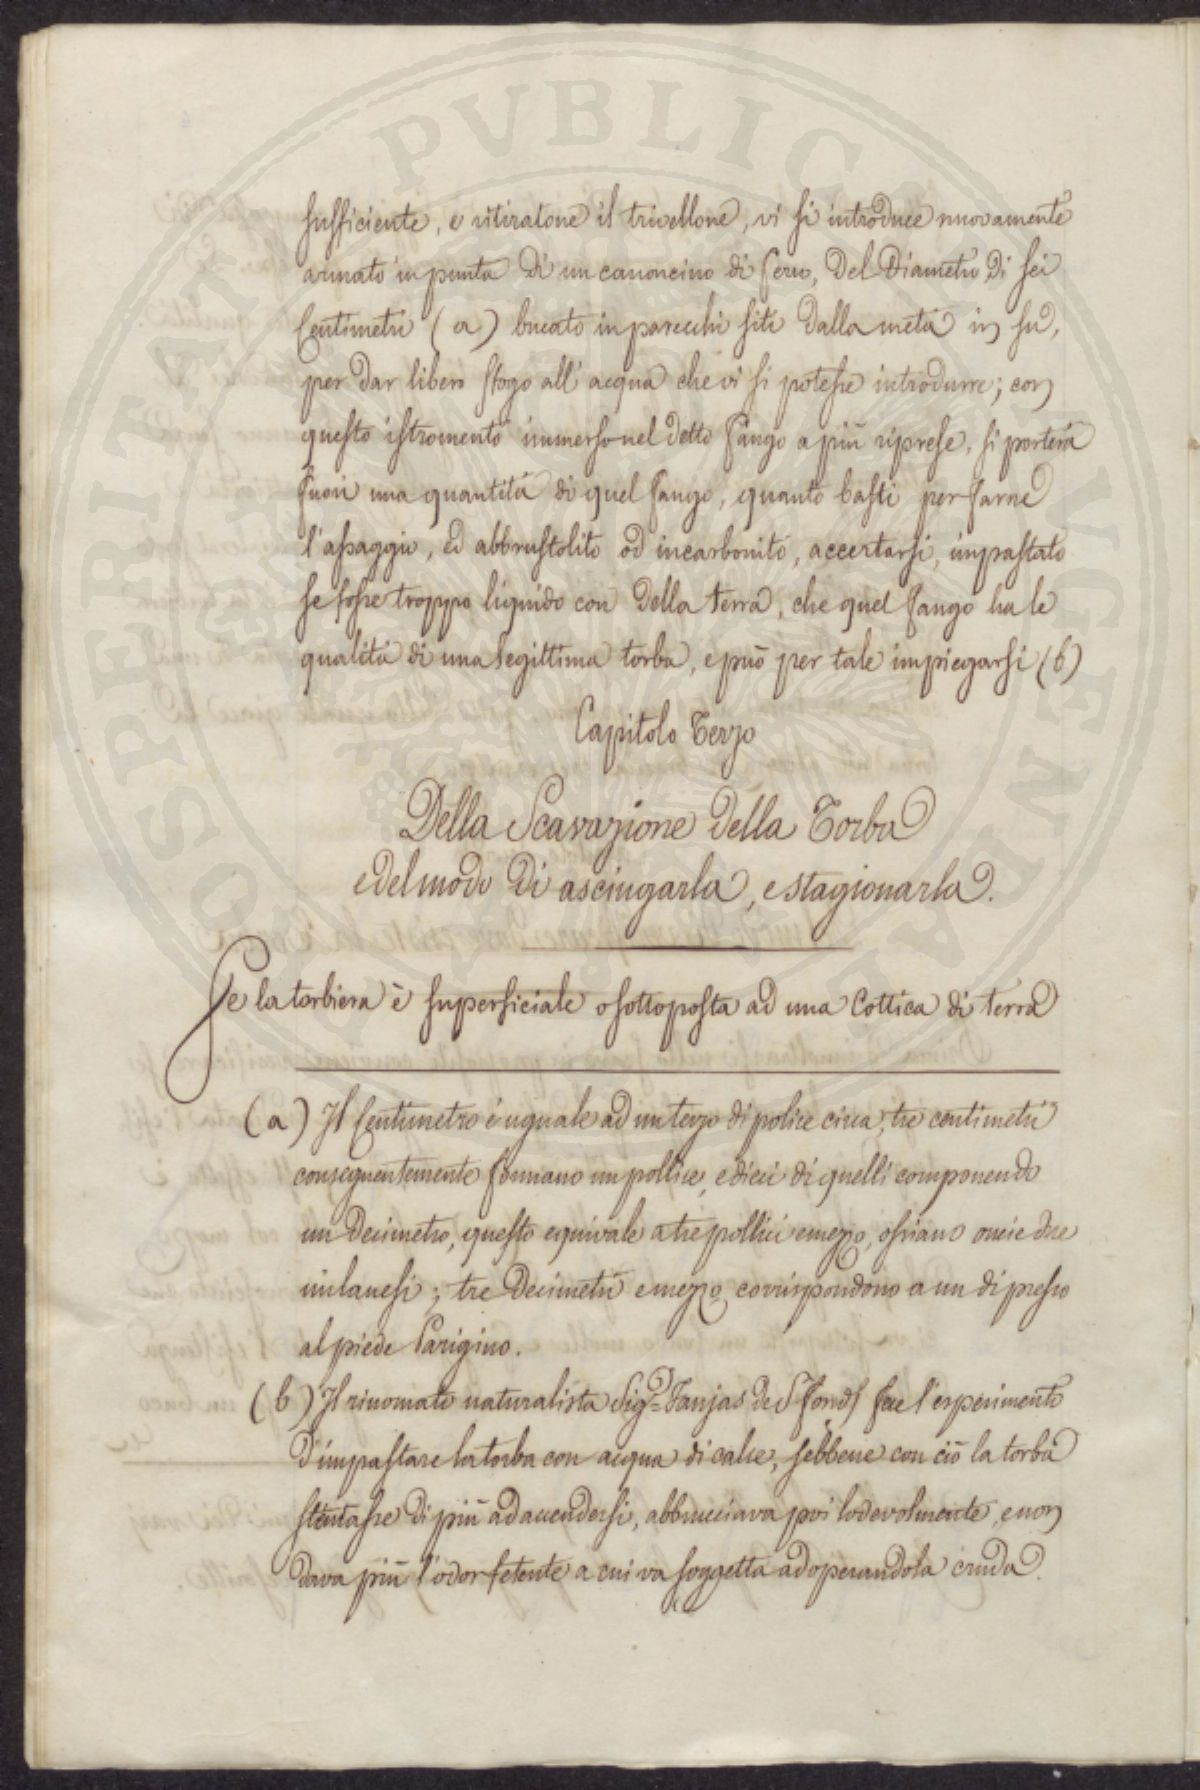 sufficiente, e ritiratone il trivellone, vi si introduce nuovamente
armato in punta di un canoncino di ferro, del Diametro di sei
Centimetri (a) bucato in parecchi siti dalla metà in su,
per dar libero sfogo all'acqua che vi si potesse introdurre; con
questo istromento immerso nel detto fango a più riprese, si porterà
fuori una quantità di quel fango, quanto basti per farne
l'assaggio, ed abbrustolito od incarbonito, accertarsi, impastato
se fosse troppo liquido con della terra, che quel fango ha le
qualità di una legittima torba, e può per tale impiegarsi (b)
Capitolo Terzo
Della Scavazione della Torba
e del modo di asciugarla, e stagionarla.
Se la torbiera è superficiale o sottoposta ad una Cottica di terra
(a) Il Centimetro è uguale ad un terzo di police circa, tre centimetri
conseguentemente formano un pollice, e dieci di quelli componendo
un Decimetro, questo equivale a tre pollici e mezzo, ossiano oncie due
milanesi; tre Decimetri e mezzo corrispondono a un di presso
al piede Parigino.
(b) Il rinomato naturalista Sig.r Faujas de S. Fond fece l'esperimento
d'impastare la torba con acqua di calce, sebbene con ciò la torba
stentasse di più ad accendersi, abbrucciava poi lodevolmente, e non
dava più l'odor fetente a cui va soggetta adoperandola cruda.